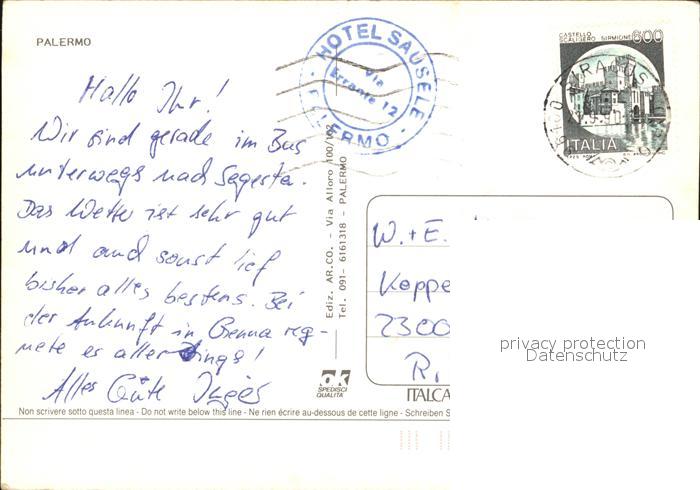 PALERMO
HOTEL SAUSELE
Via
Errante 12
PALERMO
CASTELLO
SCALIGERO SIRMIONE
600
ITALIA
Hallo Ihr!
Wir sind gerade im Bus
unterwegs nach Segesta.
Das Wetter ist sehr gut
und auch sonst lief
bisher alles bestens. Bei
der Ankunft in Genua reg-
nete es allerdings!
Alles Gute
Ediz. AR.CO. - Via Alloro 100/102
Tel. 091- 6161318 - PALERMO
W.+E.
Koppe
2300
R.
privacy protection
Datenschutz
ok
SPEDISCI
QUALITÀ
ITALCA
Non scrivere sotto questa linea - Do not write below this line - Ne rien écrire au-dessous de cette ligne - Schreiben S